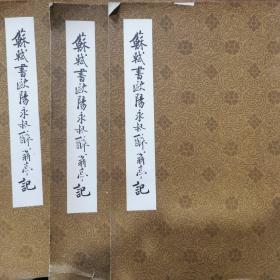 蘇軾書歐陽永叔醉翁亭記
蘇軾書歐陽永叔醉翁亭記
蘇軾書歐陽永叔醉翁亭記